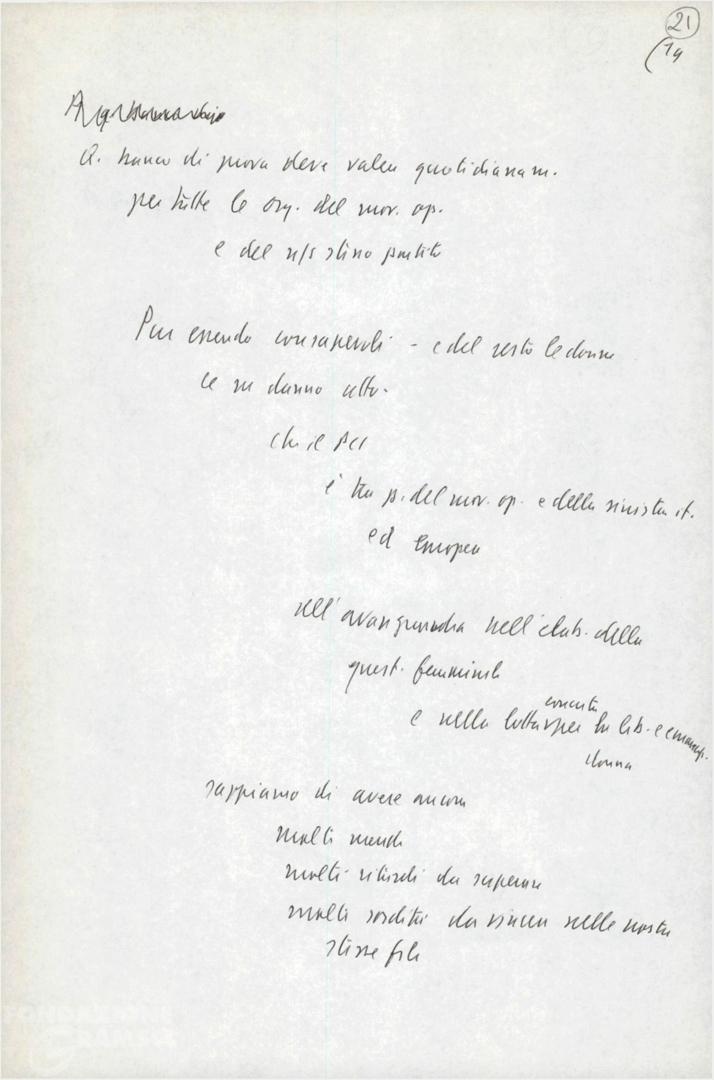 21
14
Q. banco di prova deve valere quotidianam.
per tutte le org. del mov. op.
e del n/s stesso partito
Pur essendo consapevoli - e del resto le donne
ce ne danno atto -
che il PCI
è tra p. del mov. op. e della sinistra it.
ed europea
all'avanguardia nell'elab. della
quest. femminile
concreta
e nella lotta per la lib. e emancip.
donna
sappiamo di avere ancora
molti
molti ritardi da superare
molte sordità da vincere nelle nostre
stesse file
FONDAZIONE
GRAMSCI